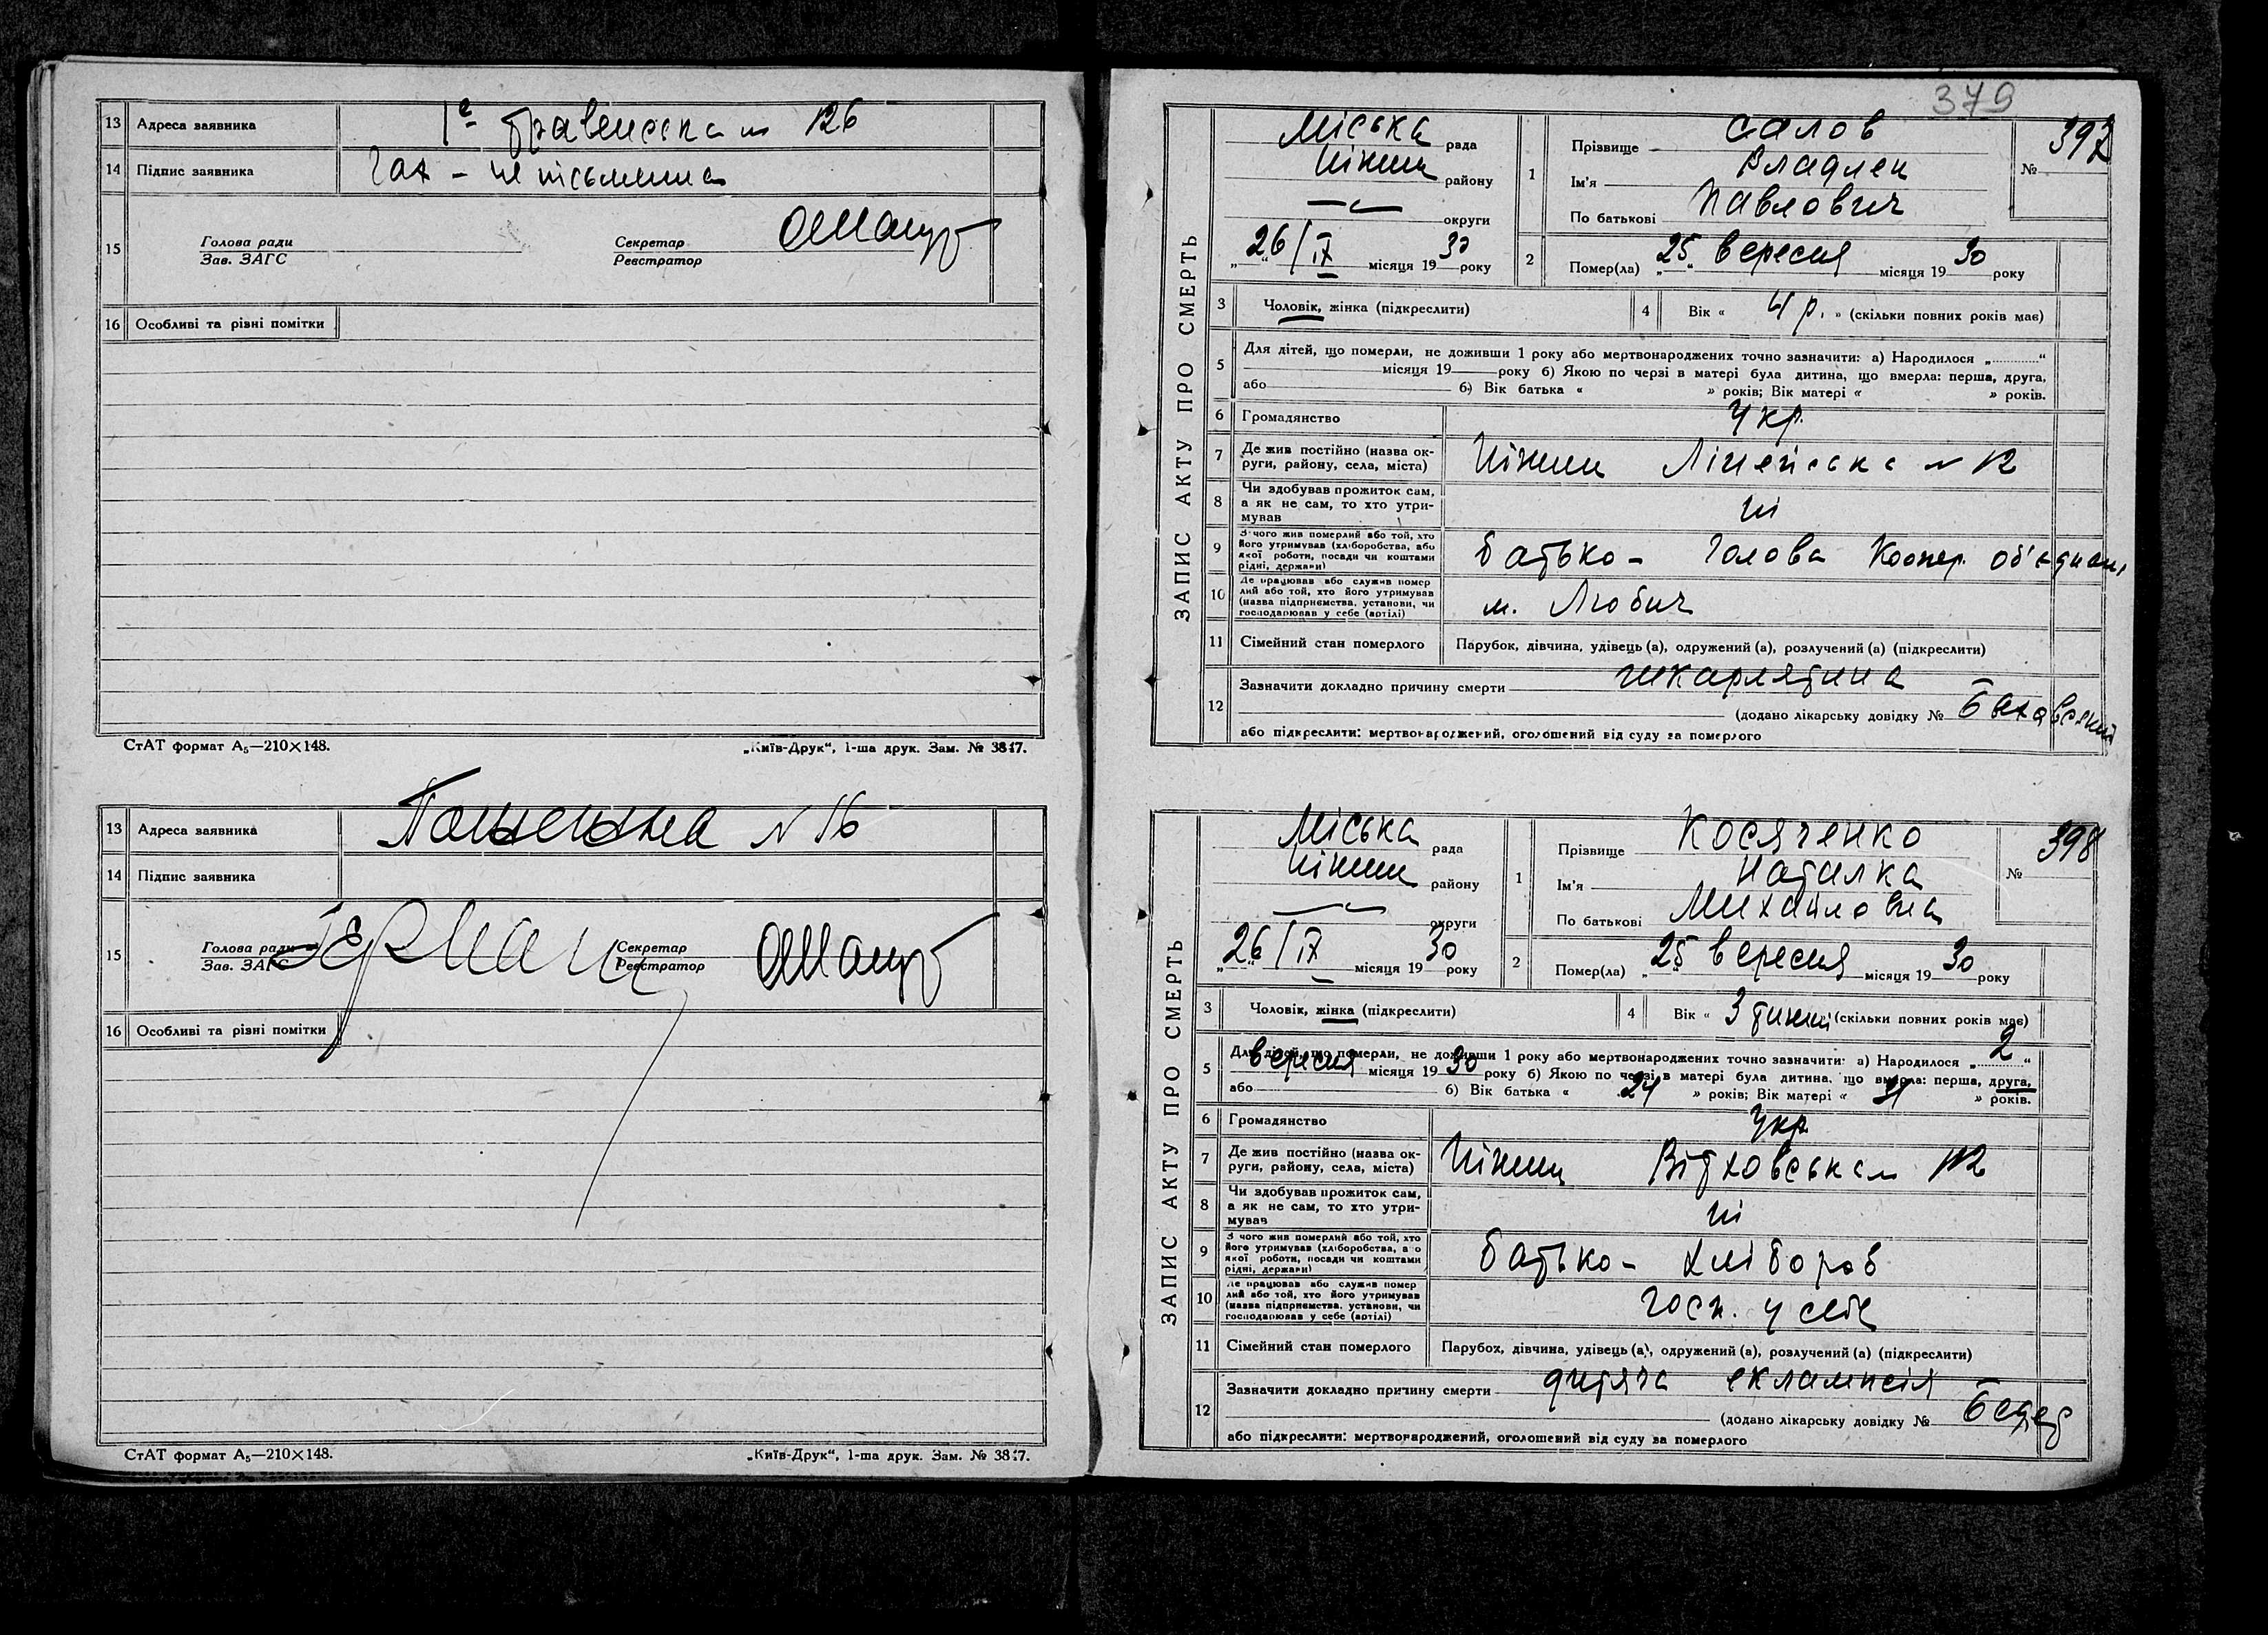 13 Адреса заявника 1ª травенська № 126
14 Підпис заявника Гах – не письменна
15 Голова ради Зав. ЗАГС Секретар Реєстратор
16 Особливі та різні помітки
СтАТ формат А₅—210×148. „Київ-Друк“, 1-ша друк. Зам. № 3817.
13 Адреса заявника № 16
14 Підпис заявника
15 Голова ради Зав. ЗАГС Секретар Реєстратор
16 Особливі та різні помітки
СтАТ формат А₅—210×148. „Київ-Друк“, 1-ша друк. Зам. № 3817.
379
ЗАПИС АКТУ ПРО СМЕРТЬ
Міська рада
Ніжин району
округи
„26“ / IX місяця 1930 року
1 Прізвище Салов
Ім'я Владлен
По батькові Павлович
№ 397
2 Помер(ла) „25“ вересня місяця 1930 року
3 Чоловік, жінка (підкреслити)
4 Вік « 4 р. » (скільки повних років має)
5 Для дітей, що померли, не доживши 1 року або мертвонароджених точно зазначити: а) Народилося „............“
місяця 19 року б) Якою по черзі в матері була дитина, що вмерла: перша, друга,
або б) Вік батька « » років; Вік матері « » років.
6 Громадянство Укр.
7 Де жив постійно (назва ок-
руги, району, села, міста) Ніжин Лінейська № 12
8 Чи здобував прожиток сам,
а як не сам, то хто утри-
мував ні
9 З чого жив померлий або той, хто
його утримував (хліборобства, або
якої роботи, посади чи коштами
рідні, держави) батько – Голова Коопер. об'єднані
10 Де працював або служив помер
лий або той, хто його утримував
(назва підприємства, установи, чи
господарював у себе (артілі) м. Любич
11 Сімейний стан померлого Парубок, дівчина, удівець (а), одружений (а), розлучений (а) (підкреслити)
12 Зазначити докладно причину смерти шкарлятина
(додано лікарську довідку №
або підкреслити: мертвонароджений, оголошений від суду за померлого
ЗАПИС АКТУ ПРО СМЕРТЬ
Міська рада
Ніжин району
округи
„26“ / IX місяця 1930 року
1 Прізвище Косяченко
Ім'я Наталка
По батькові Михайловна
№ 398
2 Помер(ла) „25“ вересня місяця 1930 року
3 Чоловік, жінка (підкреслити)
4 Вік « 3 тижні » (скільки повних років має)
5 Для дітей, що померли, не доживши 1 року або мертвонароджених точно зазначити: а) Народилося „2“
вересня місяця 1930 року б) Якою по черзі в матері була дитина, що вмерла: перша, друга,
або б) Вік батька « 24 » років; Вік матері « » років.
6 Громадянство Укр
7 Де жив постійно (назва ок-
руги, району, села, міста) Ніжин
8 Чи здобував прожиток сам,
а як не сам, то хто утри-
мував ні
9 З чого жив померлий або той, хто
його утримував (хліборобства, або
якої роботи, посади чи коштами
рідні, держави) батько – хлібороб
10 Де працював або служив помер
лий або той, хто його утримував
(назва підприємства, установи, чи
господарював у себе (артілі) госп. у себе
11 Сімейний стан померлого Парубох, дівчина, удівець (а), одружений (а), розлучений (а) (підкреслити)
12 Зазначити докладно причину смерти дитяча еклампсія
(додано лікарську довідку №
або підкреслити: мертвонароджений, оголошений від суду за померлого